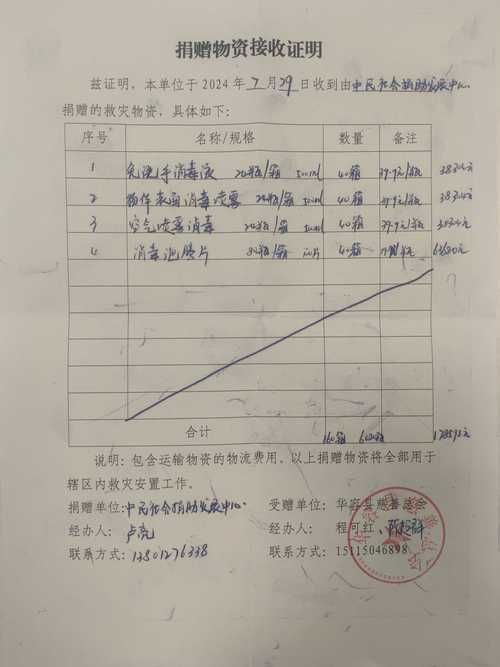 捐赠物资接收证明
兹证明，本单位于2024年7月29日收到由中民社会捐助发展中心
捐赠的救灾物资，具体如下：
序号 名称/规格 数量 备注
1 免洗手消毒液 24瓶/箱 500ml 40箱 39.9元/瓶 38304元
2 物体表面消毒喷雾 24瓶/箱 500ml 40箱 39.9元/瓶 38304元
3 空气喷雾消毒 24瓶/箱 500ml 40箱 39.9元/瓶 38304元
4 消毒泡腾片 40箱
合计 160箱
说明：包含运输物资的物流费用。以上捐赠物资将全部用于
辖区内救灾安置工作。
捐赠单位:中民社会捐助发展中心 受赠单位：华容县慈善总会
经办人：卢亮 经办人：程可红、
联系方式：13501276338 联系方式：15115046898
华容县慈善总会